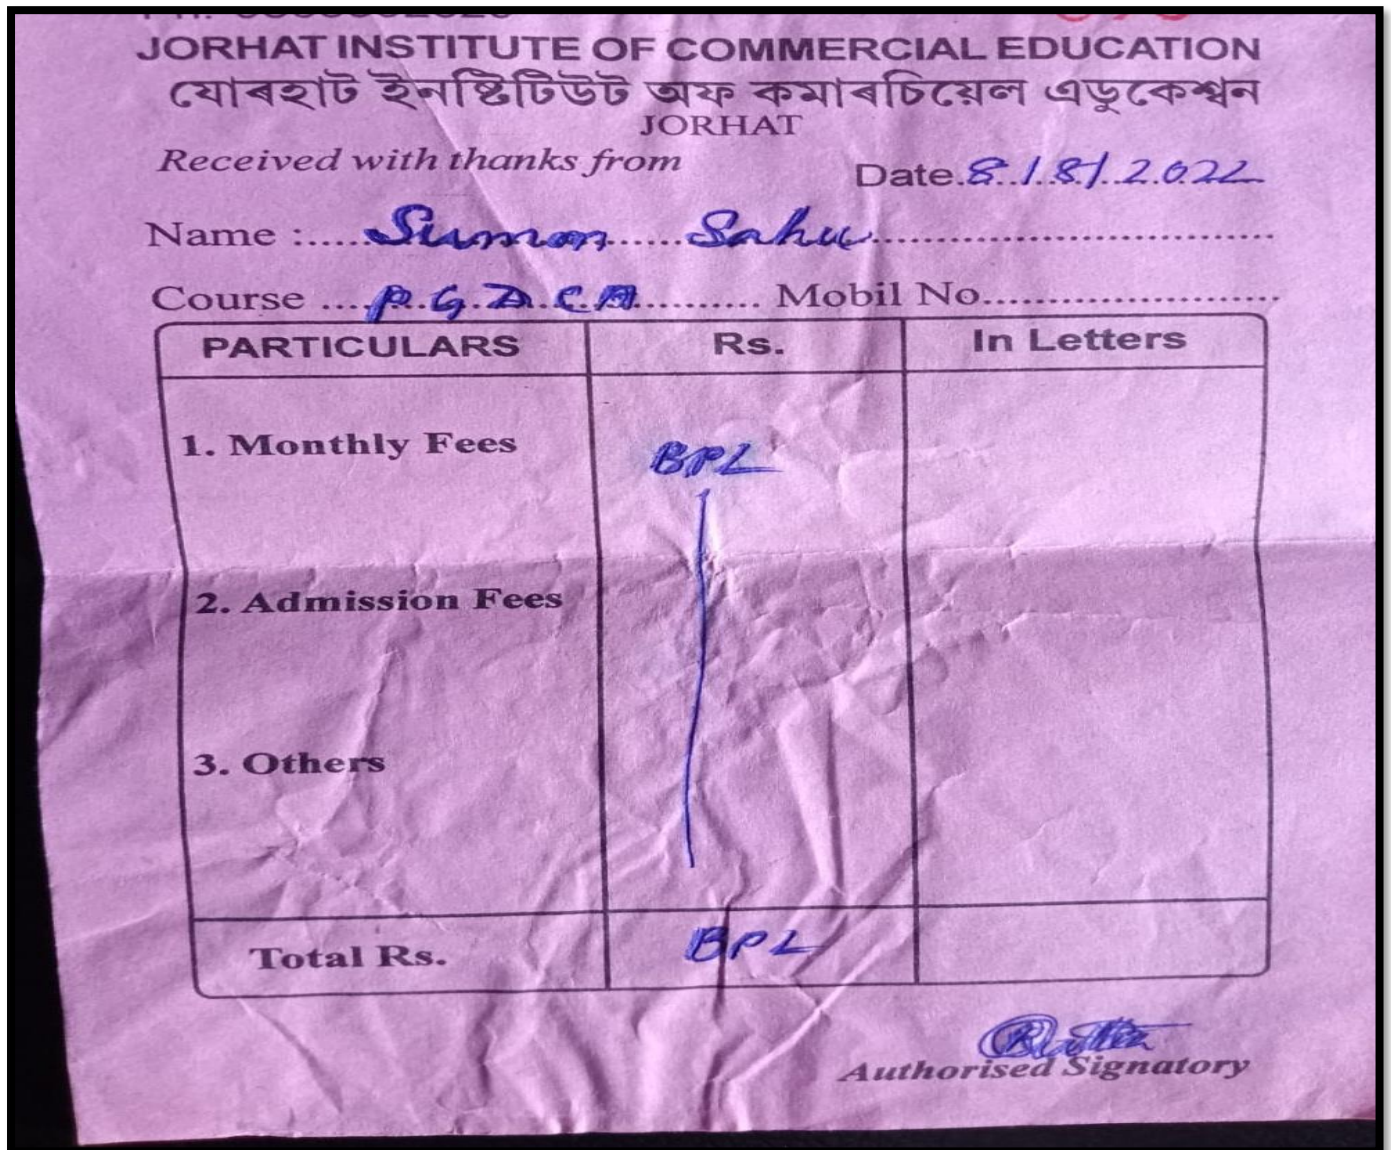 JORHAT INSTITUTE OF COMMERCIAL EDUCATION
যোৰহাট ইনষ্টিটিউট অফ কমাৰচিয়েল এডুকেশ্বন
JORHAT
Received with thanks from
Date.8/8/2022
Name :..... Sumon ...... Sahu ..............................
Course .... P.G.D.C.A ........... Mobil No..........................
PARTICULARS Rs. In Letters
1. Monthly Fees BPL
2. Admission Fees
3. Others
Total Rs. BPL
Authorised Signatory